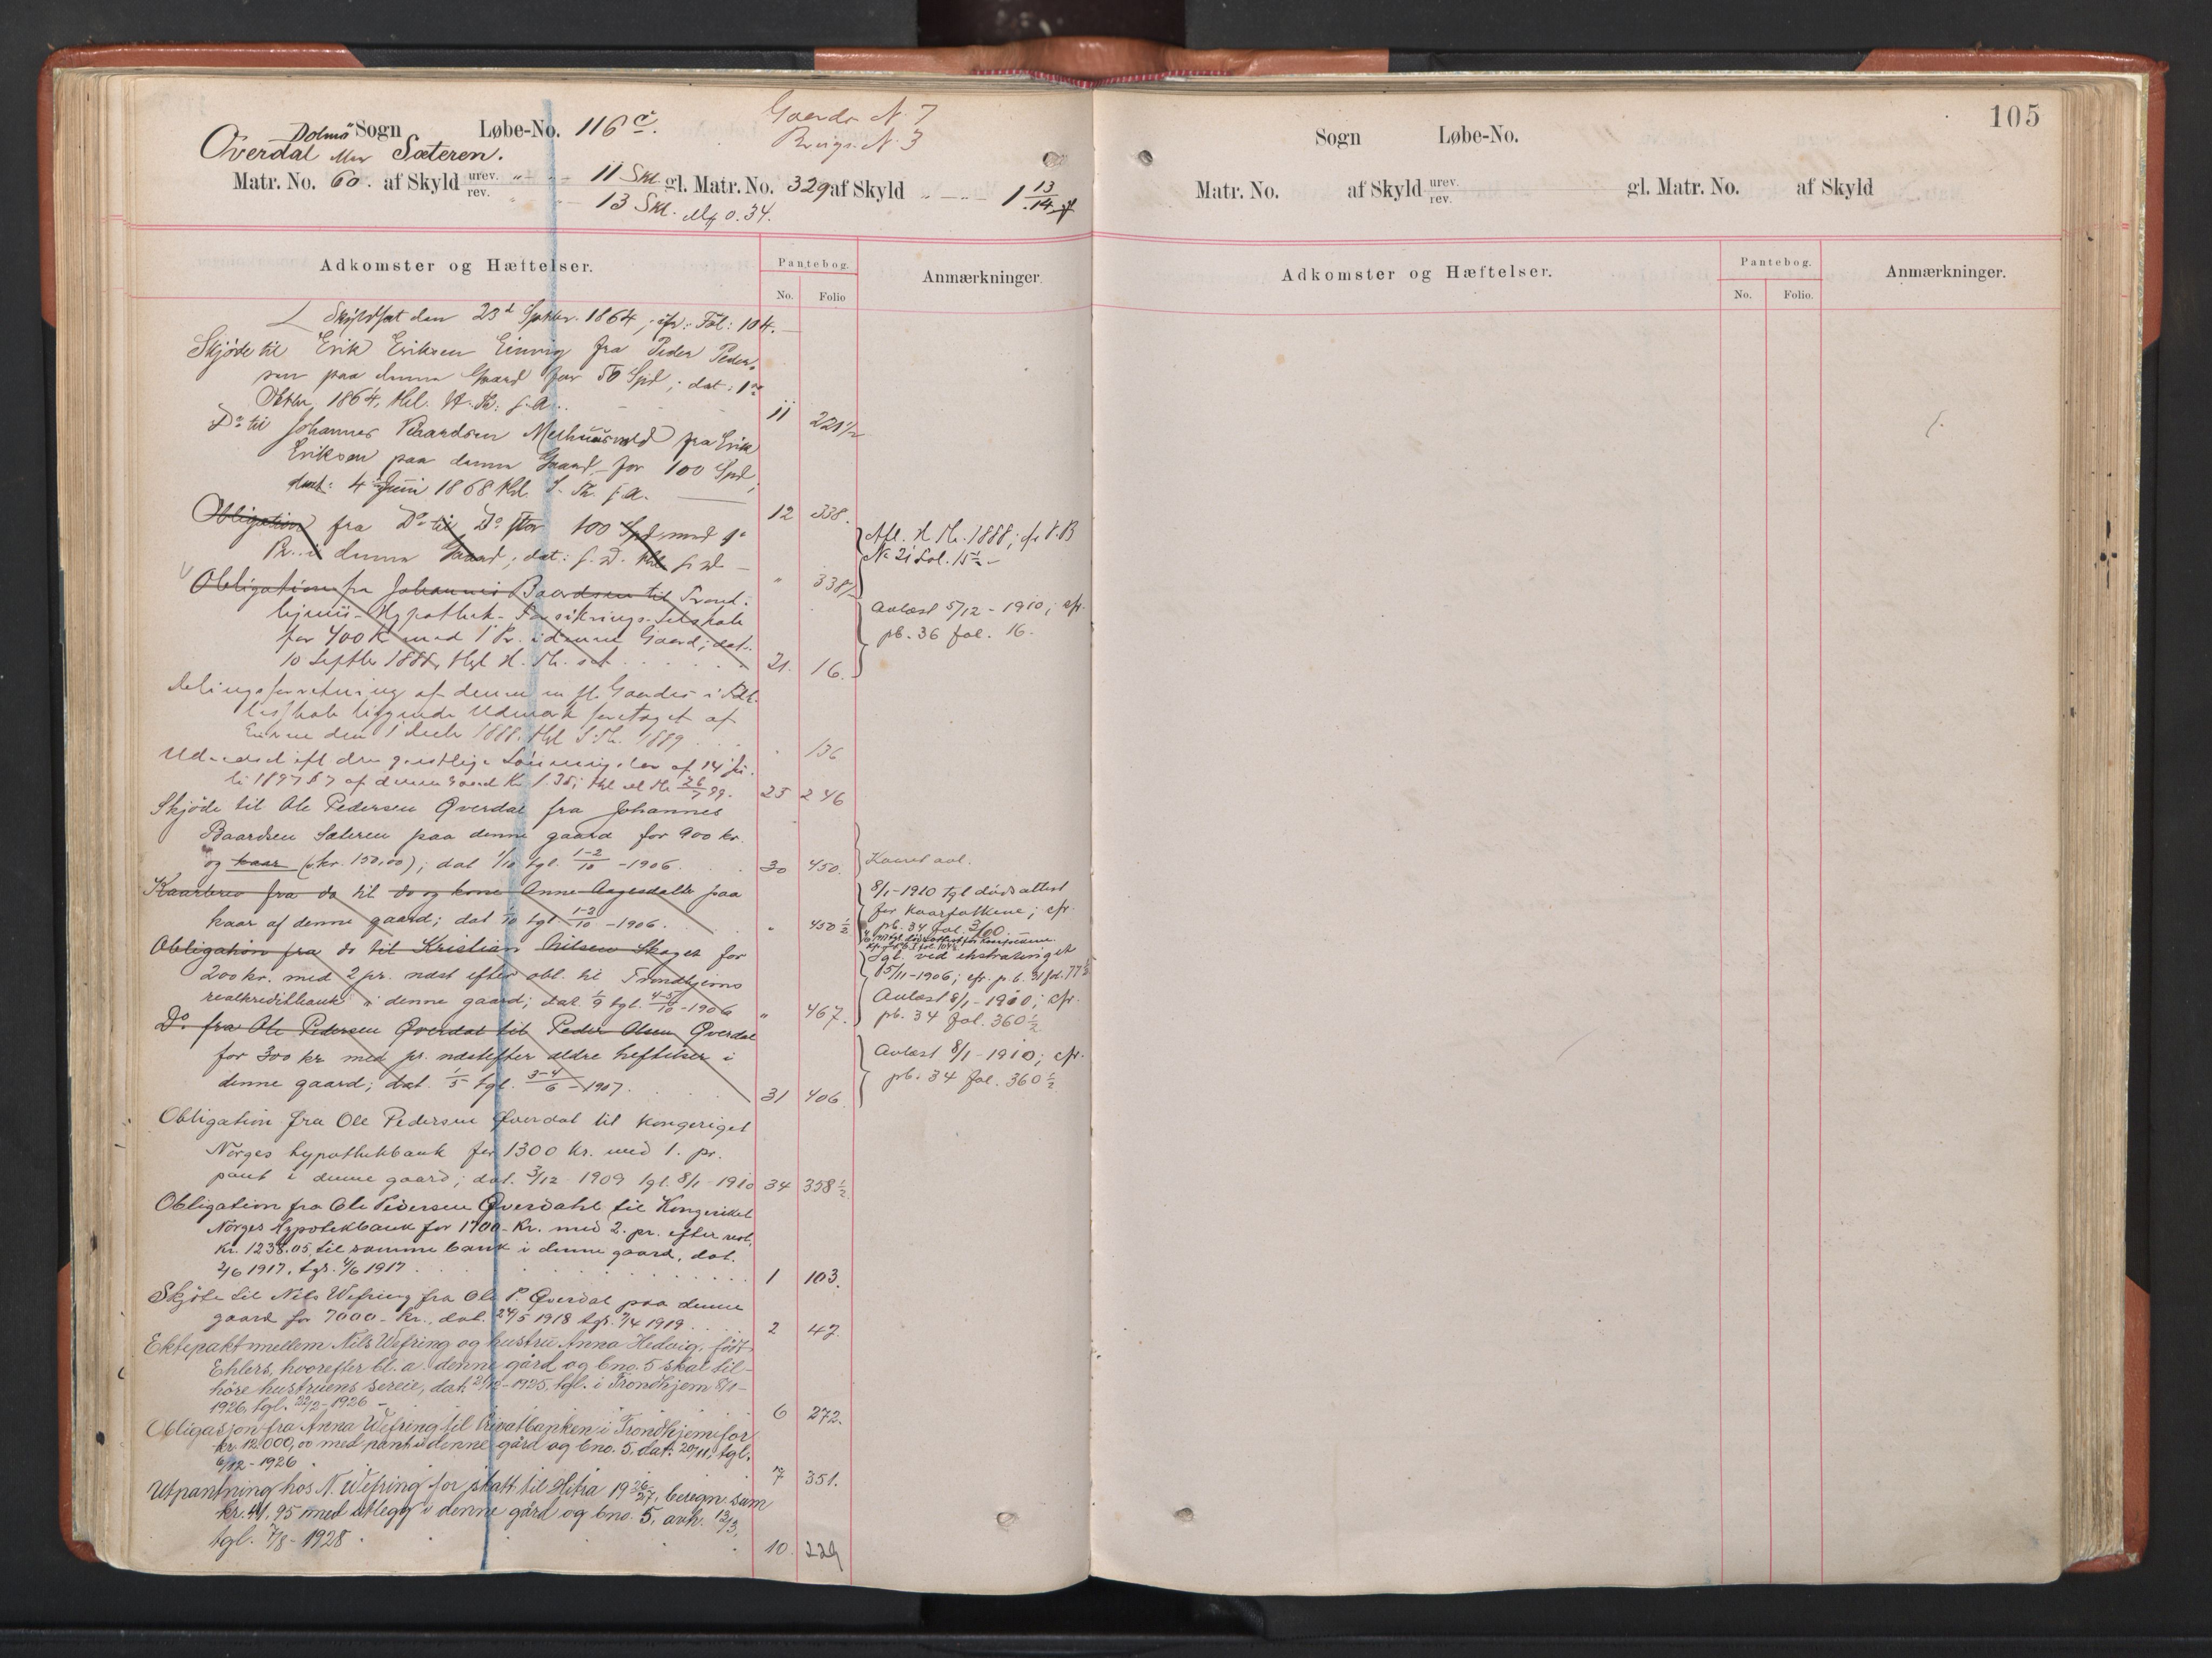 Dolmø Sogn Løbe-No. 116 c. Gaards N. 7
Overdal Sæteren. Brugs N. 3
Matr. No. 60. af Skyld urev. rev. 11 Skl. gl. Matr. No. 329 af Skyld 1 13/14
13 Skl. 0.34.
Adkomster og Hæftelser.
Pantebog.
No. Folio
Anmærkninger.
Skyldsat den 23d Septbr. 1864, cfr: Fol: 104.
Skjøde til Erik Eriksen fra Peder Peder-
sen paa denne Gaard for 50 Spd; dat: 1ste
Oktbr 1864, thl. H. Th: s. A. 11 221 1/2
Do til Johannes Baardsen fra Erik
Eriksen paa denne Gaard for 100 Spd,
dat: 4 Juni 1868 thl. S. Th. s. A. 12 338.
Obligation fra Do til Do for 100 Spd med 1ste
Pr. i denne Gaard; dat: s. D. thl. s. D. " 338 1/2
Afl. H Th. 1888; cfr P. B
No 21 Fol. 15 1/2
Obligation fra Johannes Baardsen til Trond-
hjems Hypothek- Forsikrings-Selskab
for 400 Kr med 1 Pr. i denne Gaard; dat.
10 Septbr 1888, thgl H. Th. s. A. 21. 16.
Avlæst 5/12 - 1910; cfr.
pb. 36 fol. 16.
Delingsforretning af denne m fl. Gaardes i
liggende Udmark foretaget af
den 1 1888. thl S. Th. 1889 " 136
af 14 Ju-
li 1897 § 7 af denne Gaard Kr. 1.35; thl 26/7 99. 25 246
Skjöde til Ole Pedersen Qverdal fra Johannes
Baardsen Sæteren paa denne gaard for 900 kr.
og kaar (kr. 150,00); dat 1/10 tgl. 1-2/10 - 1906. 30 450.
Kaaret avl.
Kaarbrev fra do til do og kone Anne Aagesdatter paa
kaar af denne gaard; dat 1/10 tgl. 1-2/10 - 1906. " 450 1/2
8/1 - 1910 tgl dødsattest
for kaarfolkene; cfr.
pb. 34 fol. 360.
Obligation fra do til Kristian Nilsen Skaget for
200 kr. med 2 pr. næst efter obl. til Trondhjems
realkreditbank i denne gaard; dat. 1/9 tgl. 4-5/10 - 1906 " 467.
Tgl. ved ekstratinget
15/11 - 1906; cfr. p b. 31 fol. 77 1/2
Avlæst 8/1 - 1910; cfr.
pb. 34 fol. 360 1/2
Do fra Ole Pedersen Qverdal til Peder Olsen Qverdal
for 300 kr med pr. næstefter ældre heftelser i
denne gaard; dat. 1/5 tgl. 3-4/6 - 1907. 31 406
Avlæst 8/1 - 1910; cfr.
pb. 34 fol. 360 1/2
Obligation fra Ole Pedersen Qverdal til Kongeriget
Norges hypothekbank for 1300 kr. med 1. pr.
pant i denne gaard; dat. 3/12 - 1909 tgl. 8/1 - 1910 34 358 1/2
Obligation fra Ole Pedersen Qverdahl til Kongeriket
Norges Hypotekbank for 1700 - Kr. med 2. pr. efter rest.
Kr. 1238.05 til samme bank i denne gaard, dat.
2/6 1917, tgl. 4/6 1917 1 103.
Skjöte til Nils Wefring fra Ole P. Qverdal paa denne
gaard for 7000 - Kr., dat. 24/5 1918 tgl. 7/4 1919 2 47.
Ektepakt mellem Nils Wefring og hustru Anna Hedvig, födt
Ehlers, hvorefter bl. a. denne gård og bno. 5 skal til-
höre hustruens særeie, dat. 21/12 - 1925, tgl. i Trondhjem 8/1 -
1926, tgl. 22/2 - 1926 - 6 272.
Obligasjon fra Anna Wefring til Privatbanken i Trondhjem for
kr. 12000,00 med pant i denne gård og bno. 5, dat. 20/11, tgl.
6/12 - 1926 7 351.
Utpantning hos N. Wefring for skatt til Hitra 1926/27, beregn. sum
kr. 41,95 med utlegg i denne gård og bno. 5, avh. 12/3,
tgl. 7/8 - 1928. 10. 229
105
Sogn Løbe-No.
Matr. No. af Skyld urev. rev. gl. Matr. No. af Skyld
Adkomster og Hæftelser.
Pantebog.
No. Folio.
Anmærkninger.